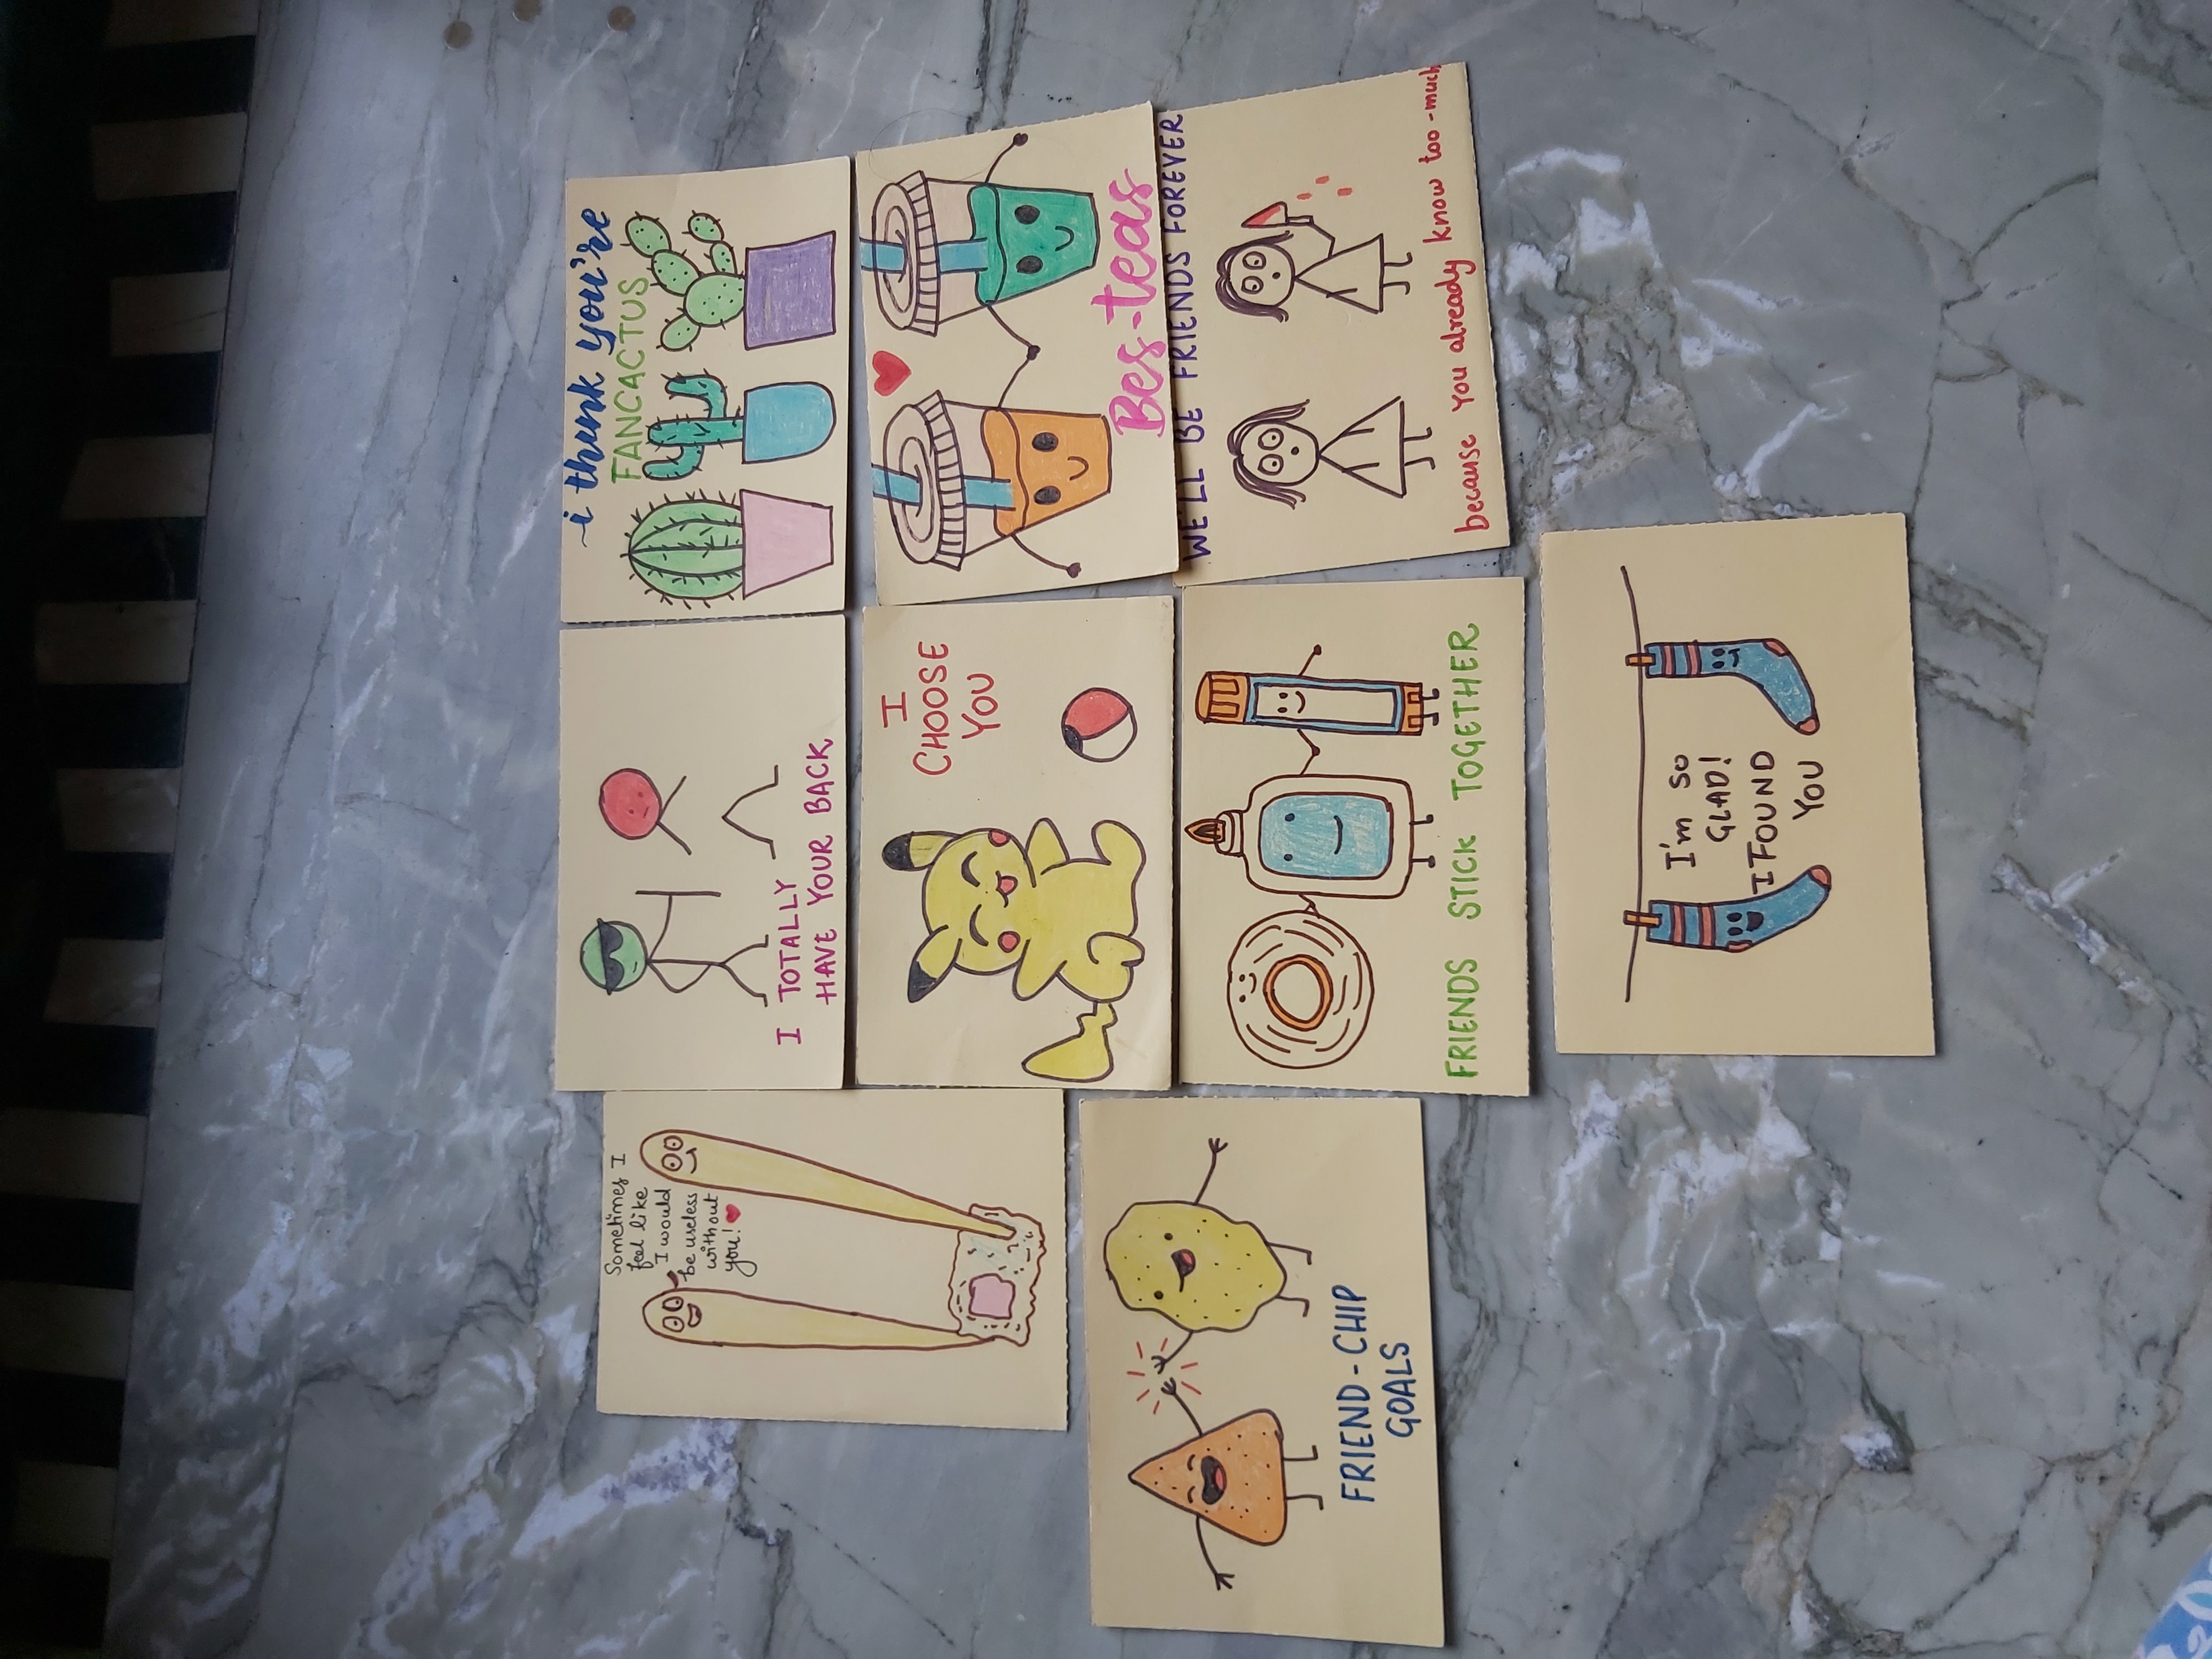 Sometimes I
feel like
I would
be useless
without
you!
I TOTALLY
HAVE YOUR BACK
i think you're
FANCACTUS
I
CHOOSE
YOU
Bes-teas
FRIEND-CHIP
GOALS
FRIENDS STICK TOGETHER
WE'LL BE FRIENDS FOREVER
because You already know too-much
I'm so
GLAD!
I FOUND
YOU